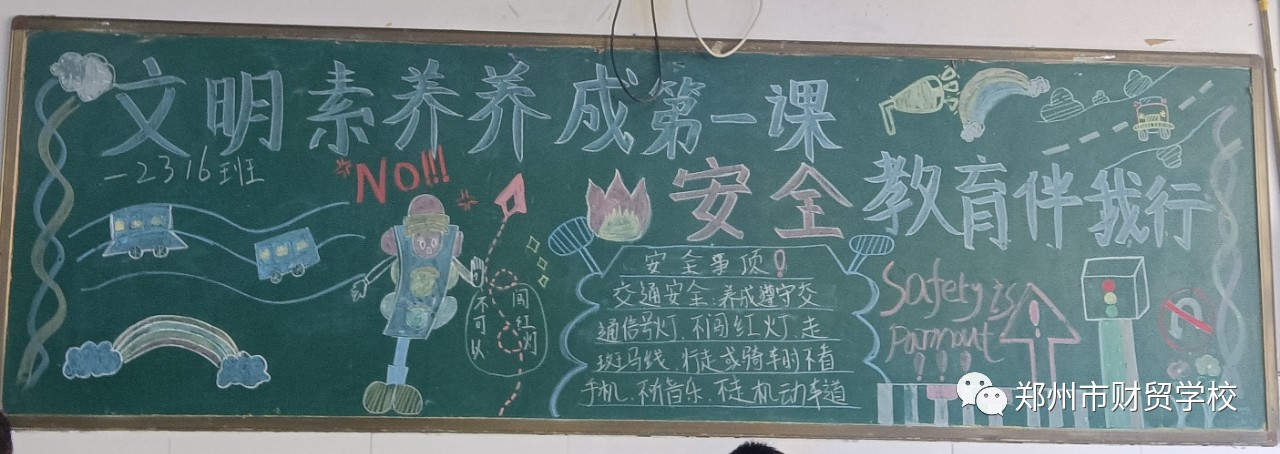 文明素养养成第一课
一2316班
NO!!!
安全教育伴我行
闯红灯
不可以
安全事项!
交通安全:养成遵守交
通信号灯.不闯红灯.走
斑马线.行走或骑车时不看
手机.不听音乐.不走机动车道
Safety is
Pamount
!!!
郑州市财贸学校